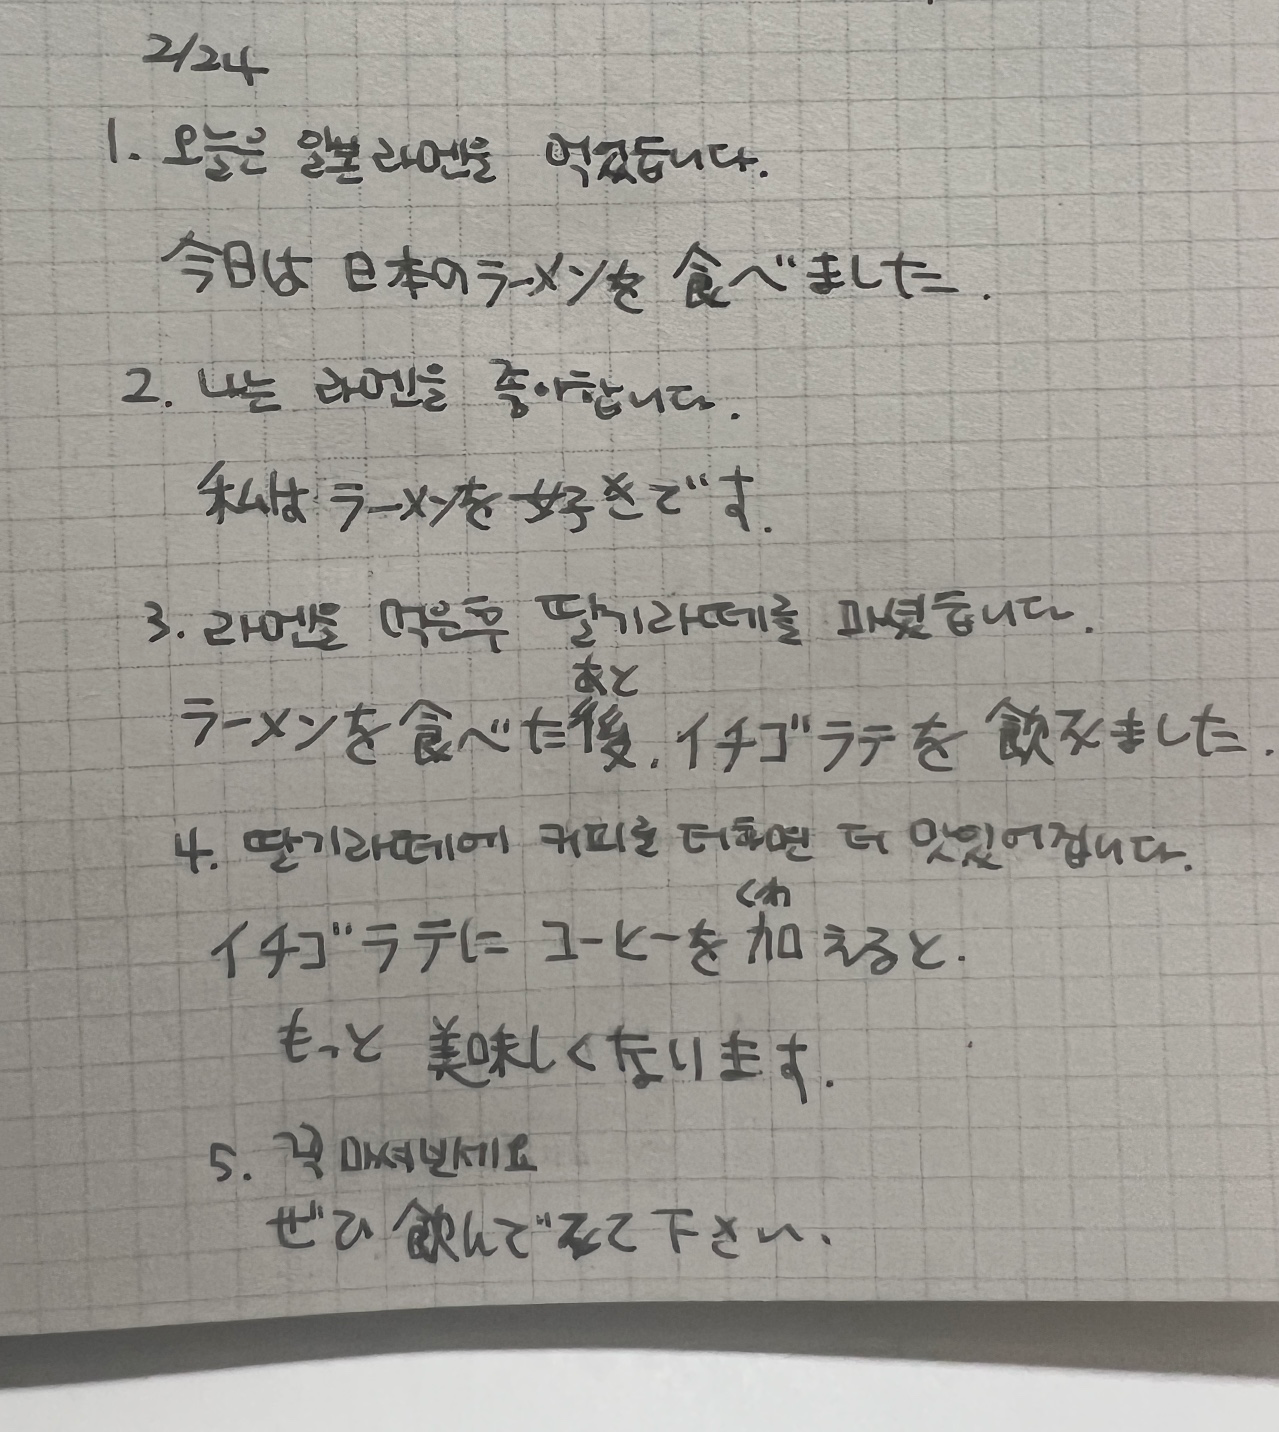 2/24
1. 오늘은 일본 라멘을 먹었습니다.
今日は 日本のラーメンを 食べました.
2. 나는 라멘을 좋아합니다.
私は ラーメンを 好きです.
3. 라멘을 먹은후 딸기라떼를 마셨습니다.
あと
ラーメンを 食べた後. イチゴラテを 飲みました.
4. 딸기라떼에 커피를 더하면 더 맛있어집니다.
くわ
イチゴラテに コーヒーを 加えると.
もっと 美味しくなります.
5. 꼭 마셔보세요
ぜひ 飲んでみて下さい.